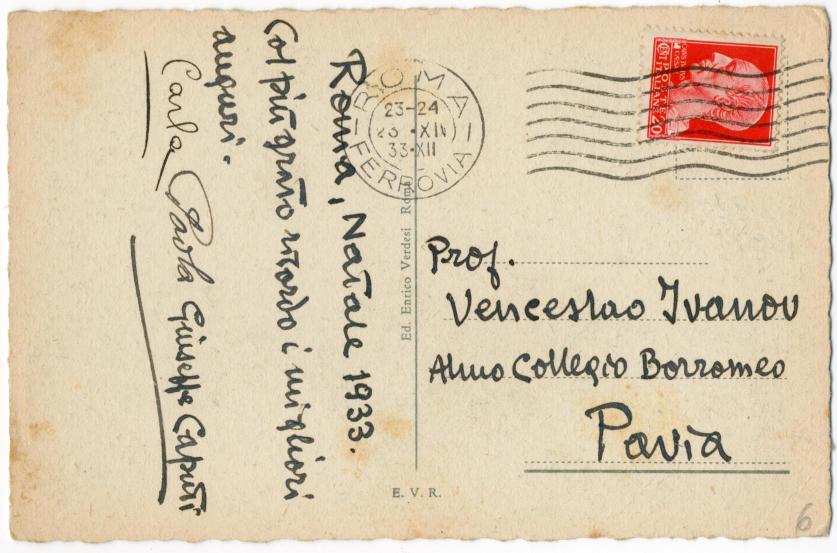 Roma, Natale 1933.
Col più grato ricordo i migliori
auguri.
Carla, Paola Giuseppe Caputi
Prof.
Venceslao Ivanov
Almo Collegio Borromeo
Pavia
ROMA
23-24
23·XII
33·XII
FERROVIA
POSTE
ITALIANE
CENT 20
Ed. Enrico Verdesi Roma
E. V. R.
6